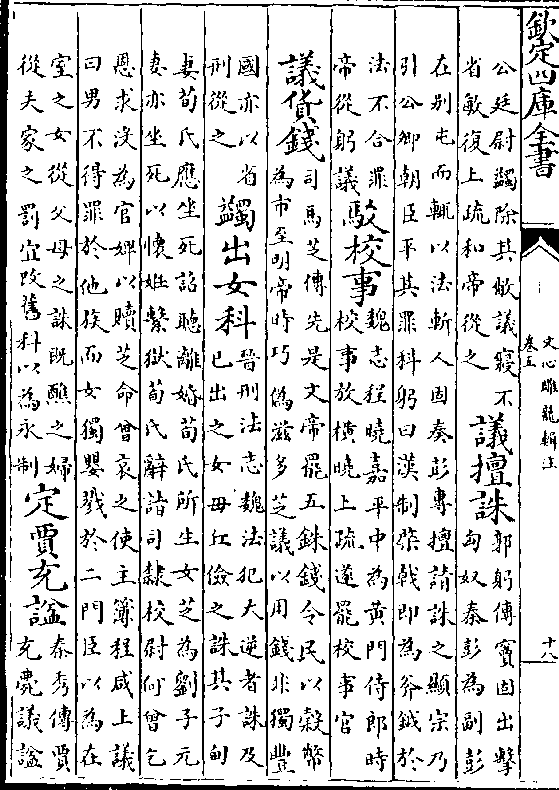 欽定四庫全書
文心雕龍輯注
卷五
十八
公廷尉蠲除其敏議寢不
省敏復上疏和帝從之
議擅誅
郭躬傳竇固出擊
匈奴秦彭為副彭
在別屯而輒以法斬人固奏彭專擅請誅之顯宗乃
引公卿朝臣平其罪科躬曰漢制棨戟即為斧鉞於
法不合罪
帝從躬議
駁校事
魏志程曉嘉平中為黃門侍郎時
校事放橫曉上疏遂罷校事官
議貨錢
司馬芝傳先是文帝罷五銖錢令民以穀幣
為市至明帝時巧偽滋多芝議以用錢非獨豐
國亦以省
刑從之
蠲出女科
晉刑法志魏法犯大逆者誅及
已出之女毋丘儉之誅其子甸
妻荀氏應坐死詔聽離婚荀氏所生女芝為劉子元
妻亦坐死以懷姙繫獄荀氏辭詣司隸校尉何曾乞
恩求沒為官婢以贖芝命曾哀之使主簿程咸上議
曰男不得罪於他族而女獨嬰戮於二門臣以為在
室之女從父母之誅既醮之婦
從夫家之罰宜改舊科以為永制
定賈充諡
秦秀傳賈
充薨議諡